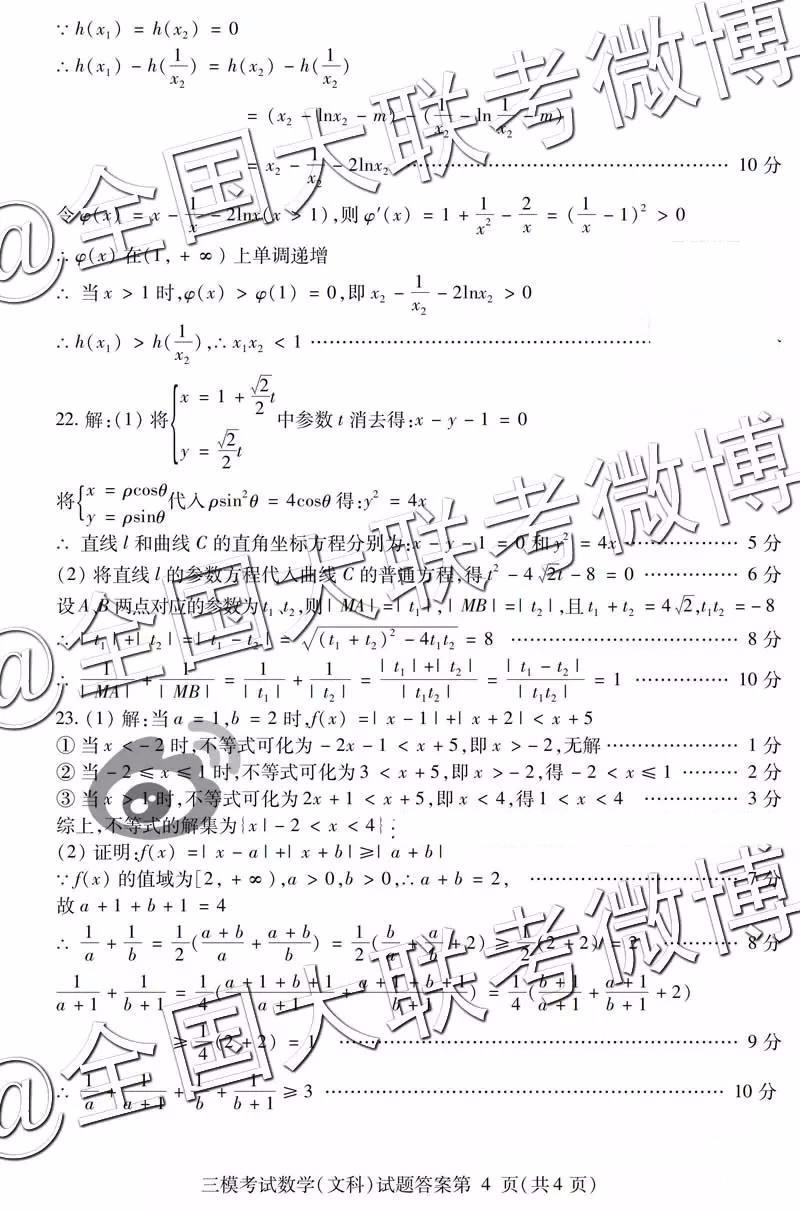 ∵ h(x₁) = h(x₂) = 0
∴ h(x₁) - h(1/x₂) = h(x₂) - h(1/x₂)
= (x₂ - lnx₂ - m) - (1/x₂ - ln 1/x₂ - m)
= x₂ - 1/x₂ - 2lnx₂ ………………………………… 10 分
令 φ(x) = x - 1/x - 2lnx(x > 1),则 φ′(x) = 1 + 1/x² - 2/x = (1/x - 1)² > 0
∴ φ(x) 在(1, + ∞) 上单调递增
∴ 当 x > 1 时,φ(x) > φ(1) = 0,即 x₂ - 1/x₂ - 2lnx₂ > 0
∴ h(x₁) > h(1/x₂),∴ x₁x₂ < 1 …………………………………
22. 解:(1) 将{x = 1 + √2/2 t, y = √2/2 t 中参数 t 消去得:x - y - 1 = 0
将{x = ρcosθ, y = ρsinθ 代入 ρsin²θ = 4cosθ 得:y² = 4x
∴ 直线 l 和曲线 C 的直角坐标方程分别为:x - y - 1 = 0 和 y² = 4x ……………… 5 分
(2) 将直线 l 的参数方程代入曲线 C 的普通方程,得 t² - 4√2t - 8 = 0 …………… 6 分
设 A、B 两点对应的参数为 t₁、t₂,则 | MA | = | t₁ |, | MB | = | t₂ |,且 t₁ + t₂ = 4√2,t₁t₂ = - 8
∴ | t₁ | + | t₂ | = | t₁ - t₂ | = √((t₁ + t₂)² - 4t₁t₂) = 8 ……………………………… 8 分
∴ 1/| MA | + 1/| MB | = 1/| t₁ | + 1/| t₂ | = (| t₁ | + | t₂ |)/| t₁t₂ | = | t₁ - t₂ |/| t₁t₂ | = 1 …………… 10 分
23. (1) 解:当 a = 1,b = 2 时,f(x) = | x - 1 | + | x + 2 | < x + 5
① 当 x < - 2 时,不等式可化为 - 2x - 1 < x + 5,即 x > - 2,无解 ………………… 1 分
② 当 - 2 ≤ x ≤ 1 时,不等式可化为 3 < x + 5,即 x > - 2,得 - 2 < x ≤ 1 ……… 2 分
③ 当 x > 1 时,不等式可化为 2x + 1 < x + 5,即 x < 4,得 1 < x < 4 …………… 3 分
综上,不等式的解集为{x | - 2 < x < 4}
(2) 证明:f(x) = | x - a | + | x + b | ≥ | a + b |
∵ f(x) 的值域为[2, + ∞),a > 0,b > 0,∴ a + b = 2, …………………………… 7 分
故 a + 1 + b + 1 = 4
∴ 1/a + 1/b = 1/2((a + b)/a + (a + b)/b) = 1/2(b/a + a/b + 2) ≥ 1/2(2 + 2) = 2 …………… 8 分
1/(a + 1) + 1/(b + 1) = 1/4((a + 1 + b + 1)/(a + 1) + (a + 1 + b + 1)/(b + 1)) = 1/4((b + 1)/(a + 1) + (a + 1)/(b + 1) + 2)
≥ 1/4(2 + 2) = 1 ……………………………………………… 9 分
∴ 1/a + 1/(a + 1) + 1/b + 1/(b + 1) ≥ 3 ……………………………………………… 10 分
三模考试数学(文科)试题答案第 4 页(共 4 页)
@全国大联考微博
@全国大联考微博
@全国大联考微博